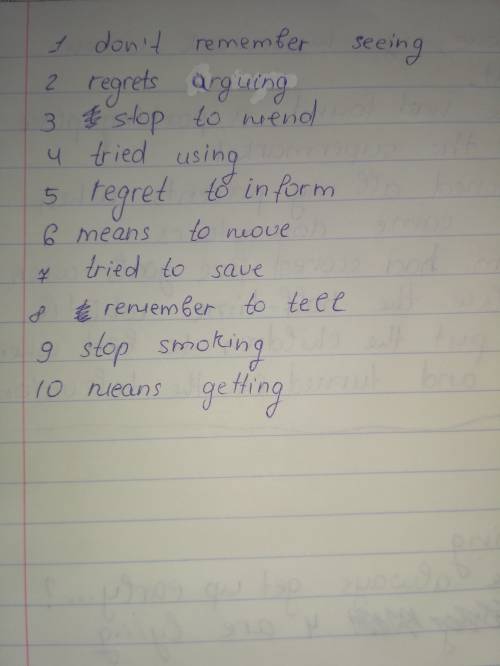 1 don't remember seeing
2 regrets arguing
3 stop to mend
4 tried using
5 regret to inform
6 means to move
7 tried to save
8 remember to tell
9 stop smoking
10 means getting
always get up early...?
4 are lying